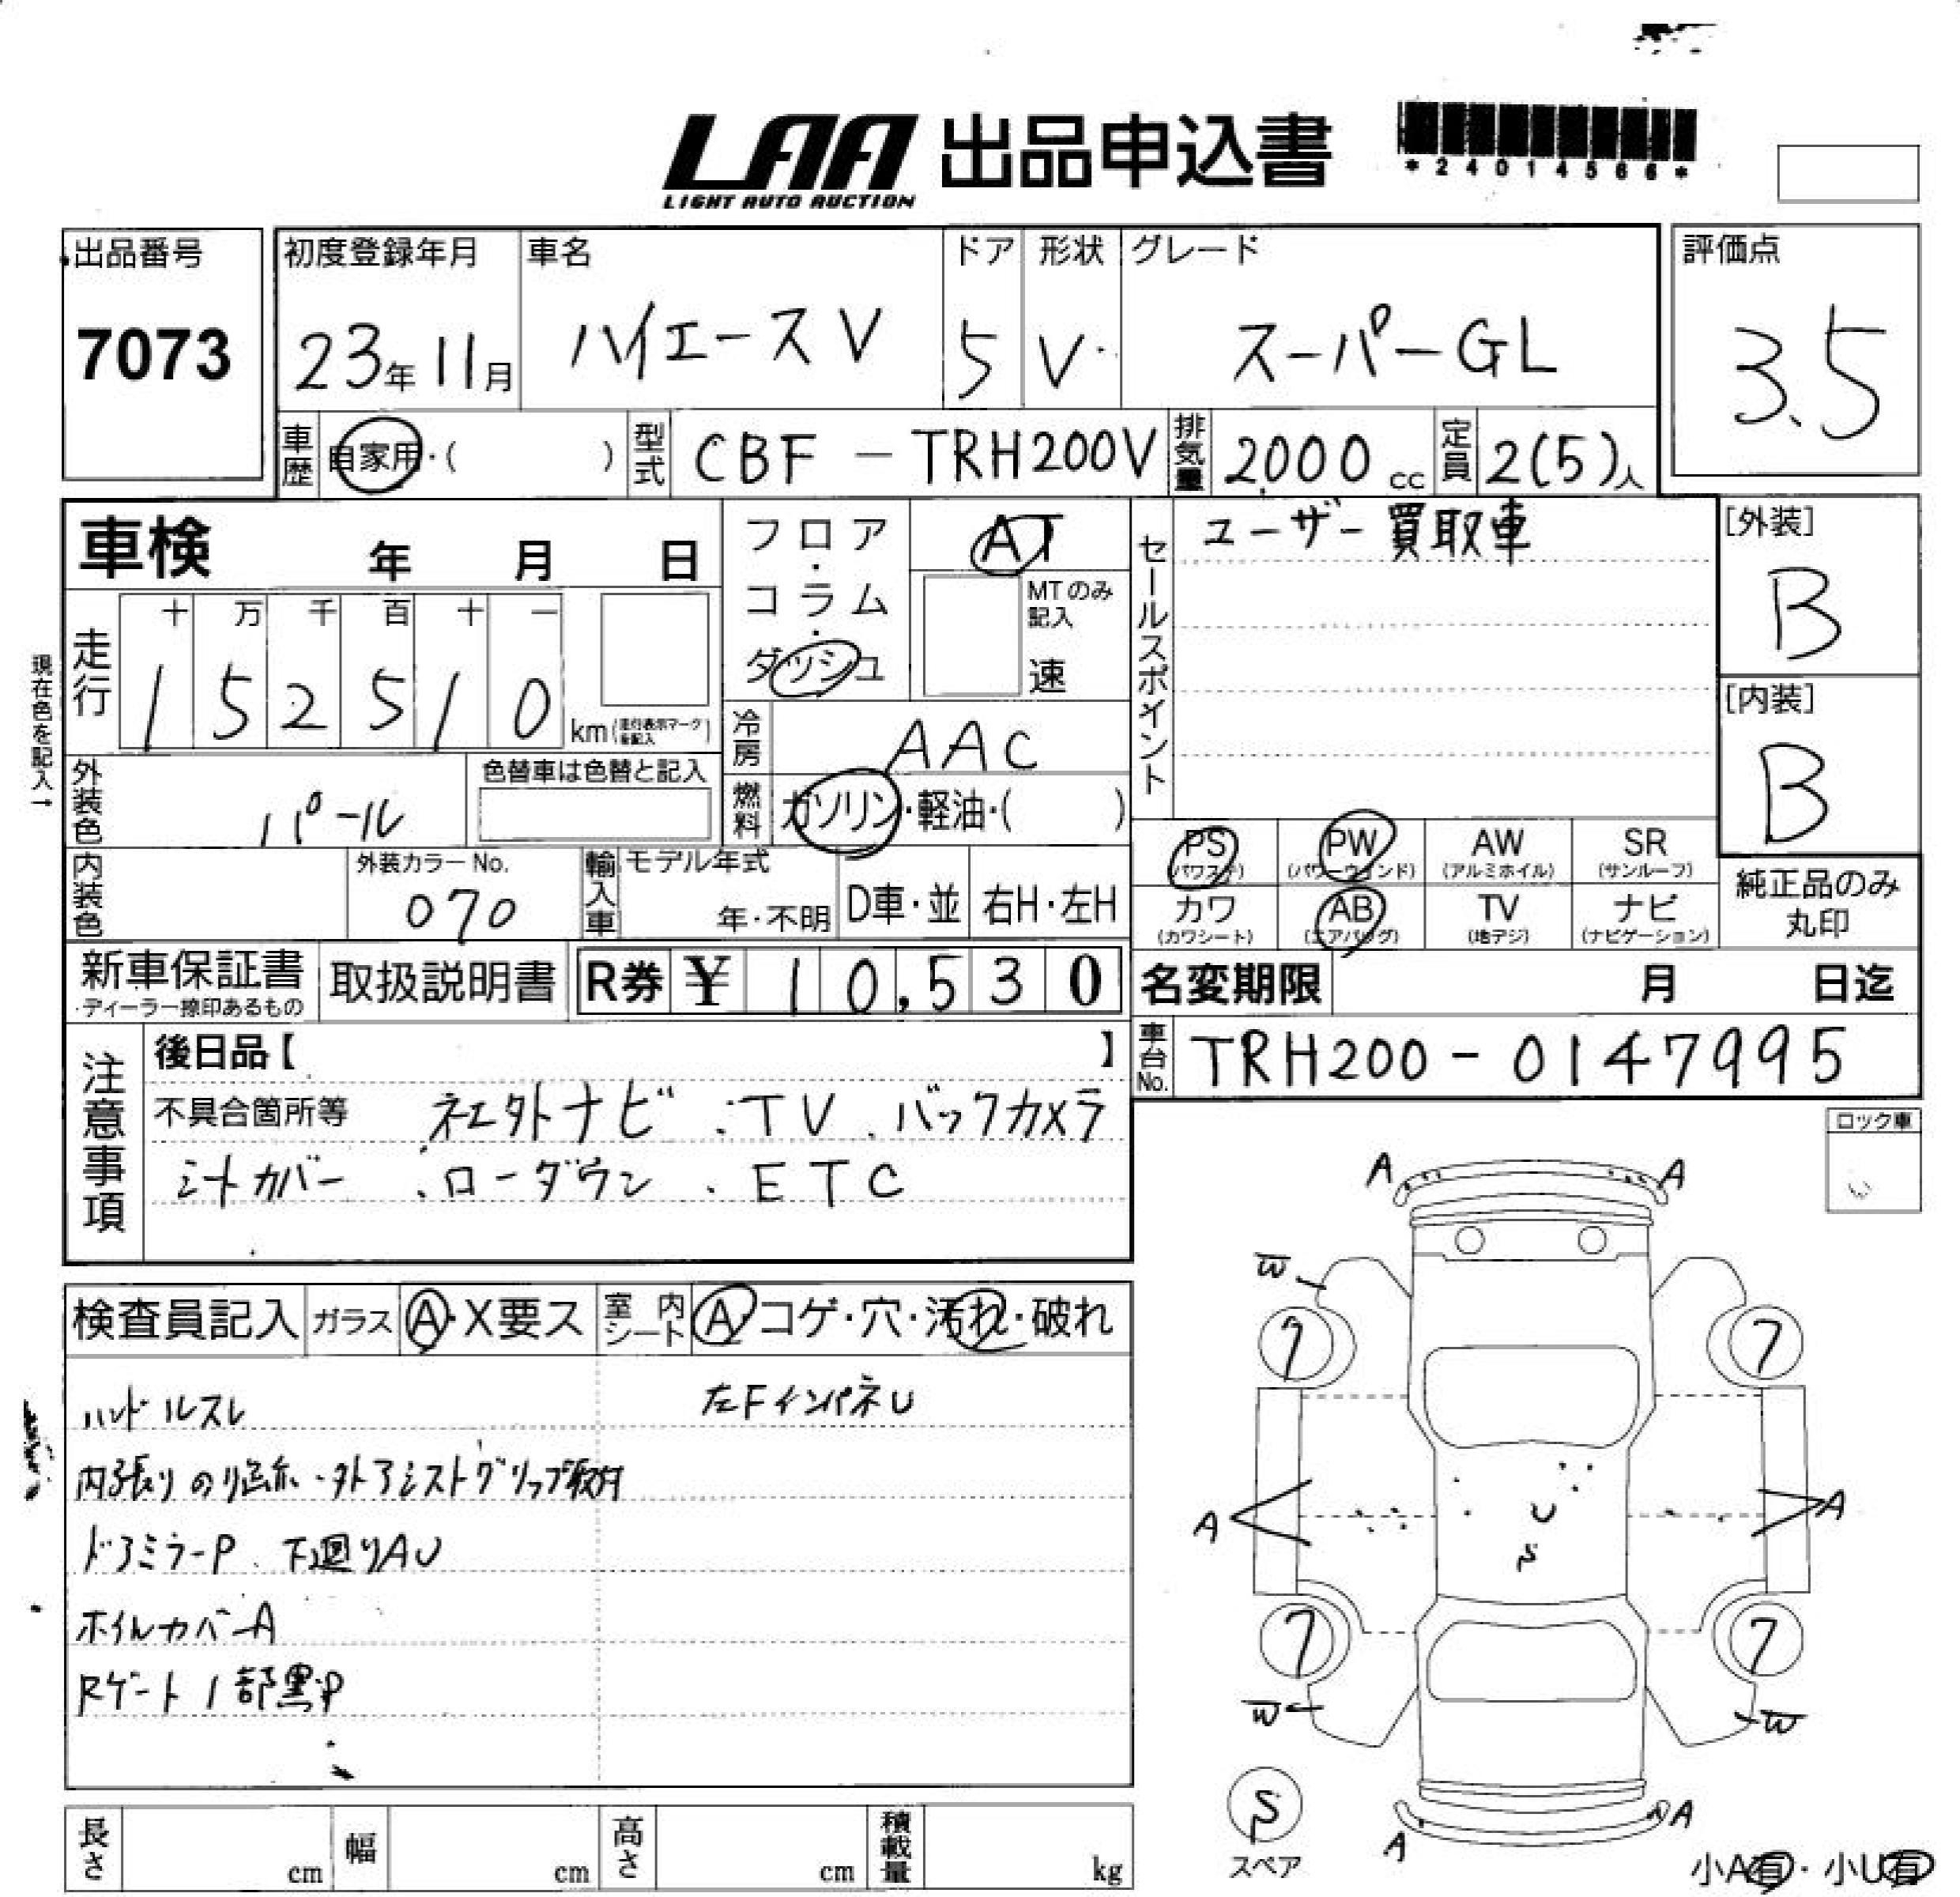 LAA 出品申込書
LIGHT AUTO AUCTION
*24014566*
出品番号
7073
初度登録年月
23年11月
車名
ハイエースV
ドア
5
形状
V
グレード
スーパーGL
評価点
3.5
車歴
自家用・( )
型式
CBF-TRH200V
排気量
2,000 cc
定員
2(5)人
車検 年 月 日
現在色を記入→
走行
十 万 千 百 十 一
1 5 2 5 1 0
km(走行表示マークを記入)
フロア・コラム・ダッシュ
AT
MTのみ記入
速
冷房
AAC
燃料
ガソリン・軽油・( )
セールスポイント
ユーザー買取車
[外装]
B
[内装]
B
外装色
パール
色替車は色替と記入
内装色
外装カラーNo.
070
輸入車
モデル年式
年・不明
D車・並
右H・左H
PS
(パワステ)
PW
(パワーウインド)
AW
(アルミホイル)
SR
(サンルーフ)
カワ
(カワシート)
AB
(エアバッグ)
TV
(地デジ)
ナビ
(ナビゲーション)
純正品のみ
丸印
新車保証書
・ディーラー捺印あるもの
取扱説明書
R券 ¥ 10,530
名変期限 月 日迄
車台No.
TRH200-0147995
注意事項
後日品【 】
不具合箇所等 社外ナビ.TV.バックカメラ
シートカバー.ローダウン.ETC
ロック車
検査員記入
ガラス
A・X要ス
室内シート
A・コゲ・穴・汚れ・破れ
ハンドルスレ
左FインパネU
内張りのり跡・外アシストグリップ取付
ドアミラーP 下廻りAU
ホイルカバーA
Rゲート1部黒P
A
A
W
7
7
A
A
U
S
7
7
W
W
S
スペア
A
A
小A有・小U有
長さ cm
幅 cm
高さ cm
積載量 kg